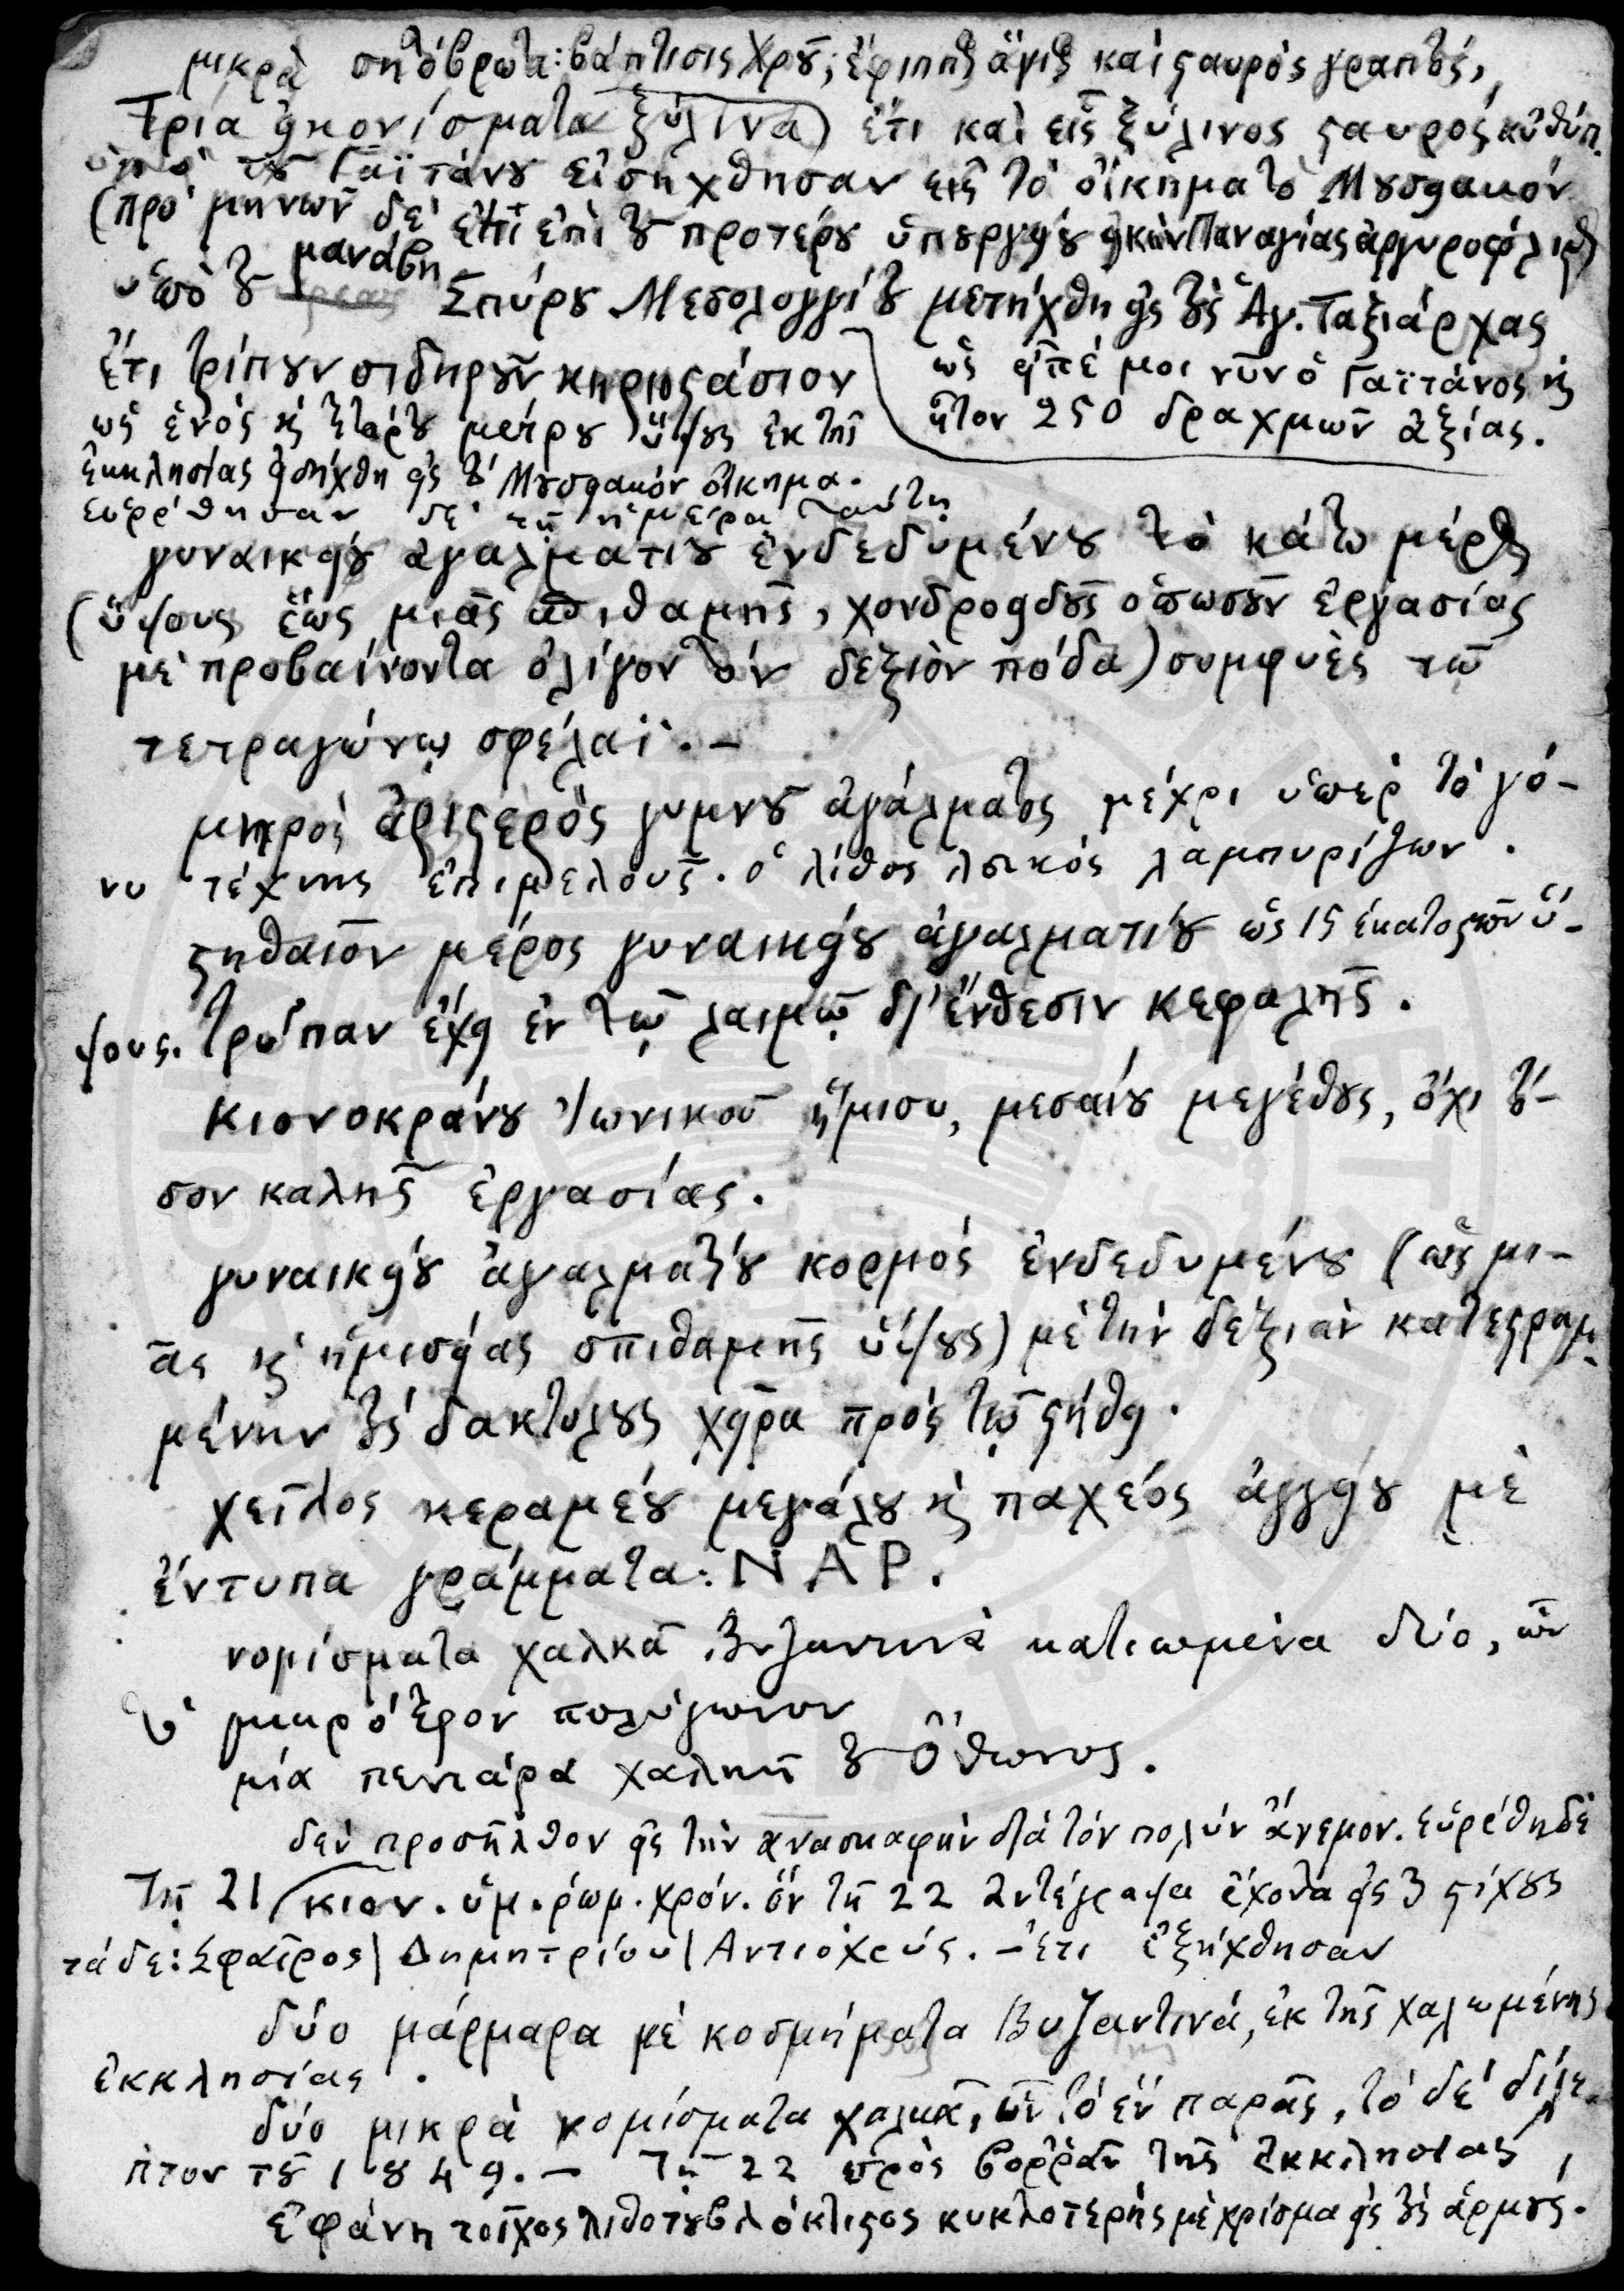 μικρὰ σητόβρωτα: βάπτισις Χρȣ͂, ἔφιππος ἅγιος καὶ ϛαυρὸς γραπτός,
Τρία εἰκονίσματα ξύλινα) ἔτι καὶ εἷς ξύλινος ϛαυρός
ὑπὸ τȣ͂ Γαϊτάνȣ εἰσήχθησαν εἰς τὸ οἴκημα τὸ Μȣσειακόν
(πρὸ μηνῶν δὲ ἔτι ἐπὶ τȣ͂ προτέρȣ ὑπȣργείȣ εἰκὼν Παναγίας
μανάβη
ὑπὸ τȣ͂ Σπύρȣ Μεσολογγίτȣ μετήχθη εἰς τȣ̀ς Ἁγ. Ταξιάρχας
ἔτι τρίπȣν σιδηρȣ͂ν κηριοϛάσιον
ὡς εἶπέ μοι νῦν ὁ Γαϊτάνος ϗ
ὡς ἑνὸς ϗ τετάρτȣ μέτρȣ ὕψȣς ἐκ τῆς
ἦτον 250 δραχμῶν ἀξίας.
ἐκκλησίας εἰσήχθη εἰς τὸ Μȣσειακὸν οἴκημα.
εὑρέθησαν δὲ τῇ ἡμέρᾳ ταύτῃ
γυναικείȣ ἀγαλματίȣ ἐνδεδυμένȣ τὸ κάτω μέρος
(ὕψους ἕως μιᾶς σπιθαμῆς, χονδροειδȣ͂ς ὁπωσȣ͂ν ἐργασίας
μὲ προβαίνοντα ὀλίγον τὸν δεξιὸν πόδα) συμφυὲς τῷ
τετραγώνῳ σφέλαϊ. –
μηρὸς ἀριϛερὸς γυμνȣ͂ ἀγάλματος μέχρι ὑπὲρ τὸ γό-
νυ τέχνης ἐπιμελοῦς. ὁ λίθος λευκός λαμπυρίζων.
ϛηθαῖον μέρος γυναικείȣ ἀγαλματίȣ ὡς 15 ἑκατοϛῶν ὕ-
ψους. τρύπαν ἔχει ἐν τῷ λαιμῷ δι' ἔνθεσιν κεφαλῆς.
κιονοκράνȣ ἰωνικοῦ ἥμισυ, μεσαίȣ μεγέθȣς, ὄχι τό-
σον καλῆς ἐργασίας.
γυναικείȣ ἀγαλματίȣ κορμός ἐνδεδυμένȣ (ὡς μι-
ᾶς ϗ ἡμισείας σπιθαμῆς ὕψȣς) μὲ τὴν δεξιὰν κατεϛραμ-
μένην τȣ̀ς δακτύλȣς χεῖρα πρὸς τῷ ϛήθει.
χεῖλος κεραμέȣ μεγάλȣ ϗ παχέος ἀγγείȣ μὲ
ἔντυπα γράμματα: ΝΑΡ.
νομίσματα χαλκᾶ Βυζαντινὰ κατιωμένα δύο, ὧν
τὸ μικρότερον πολύγωνον
μία πεντάρα χαλκῆ τȣ͂ Ὄθωνος.
δὲν προσῆλθον εἰς τὴν ἀνασκαφὴν διὰ τὸν πολὺν ἄνεμον. εὑρέθη δὲ
τῇ 21 κιον. ἐπιτ. ῥωμ. χρόν. ὃν τῇ 22 ἀντέγραψα ἔχοντα εἰς 3 ϛίχȣς
τάδε: Σφαῖρος| Δημητρίου| Αντιοχεύς. – ἔτι ἐξήχθησαν
δύο μάρμαρα μὲ κοσμήματα Βυζαντινά, ἐκ τῆς χαλωμένης
ἐκκλησίας.
δύο μικρὰ νομίσματα χαλκᾶ, ὧν τὸ ἓν παρᾶς, τὸ δὲ δίλε-
πτον τȣ͂ 1849. – Τῇ 22 πρὸς βορρᾶν τῆς ἐκκλησίας,
ἐφάνη τοῖχος λιθοτȣβλόκτιϛος κυκλοτερὴς μὲ χρίσμα εἰς τȣ̀ς ἁρμȣ́ς.